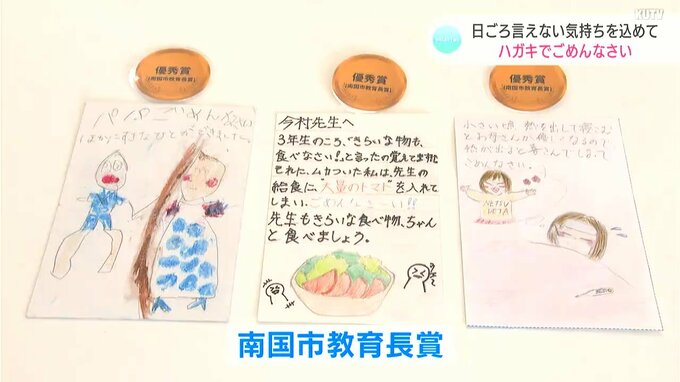 KUTV
日ごろ言えない気持ちを込めて
ハガキでごめんなさい
優秀賞
(南国市教育長賞)
優秀賞
(南国市教育長賞)
優秀賞
(南国市教育長賞)
パパごめんなさい
ほかにすきなひとができました。
今村先生へ
3年生のころ、きらいな物も、
食べなさい!!と言ったの覚えてますか
ムカついた私は、先生の
給食に、"大量のトマト"を入れて
しまい、ごめんなさーい!!
先生もきらいな食べ物、ちゃん
と食べましょう。
小さい頃、熱を出して寝こむ
とお母さんが優しくなるので
熱が出ると喜んでしまって
ごめんなさい。
NETSU
南国市教育長賞